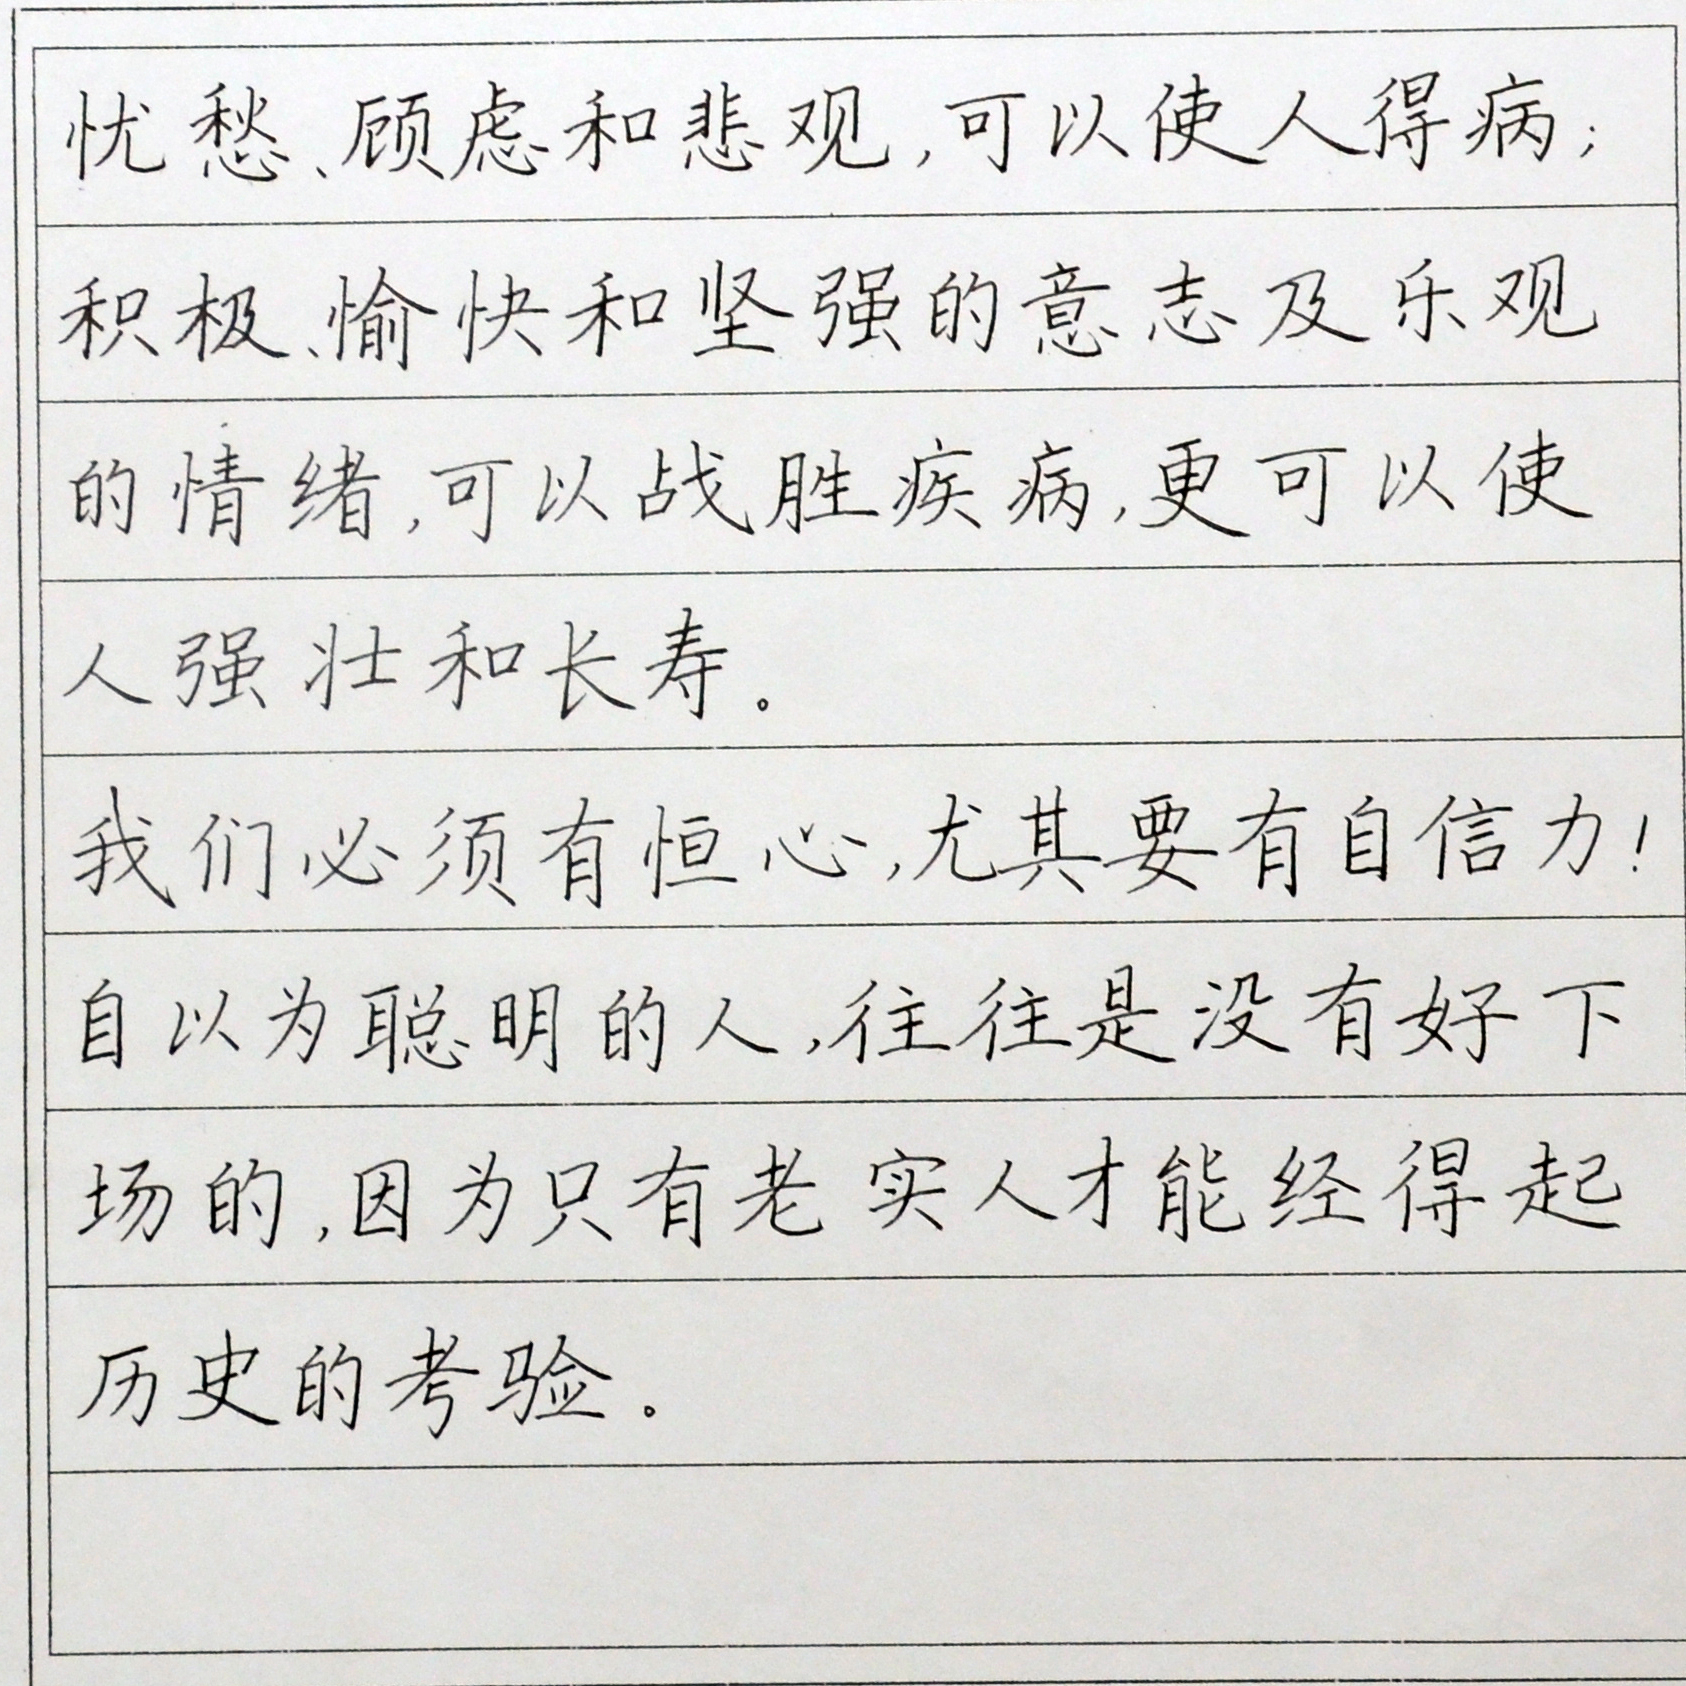 忧愁、顾虑和悲观,可以使人得病;
积极、愉快和坚强的意志及乐观
的情绪,可以战胜疾病,更可以使
人强壮和长寿。
我们必须有恒心,尤其要有自信力!
自以为聪明的人,往往是没有好下
场的,因为只有老实人才能经得起
历史的考验。